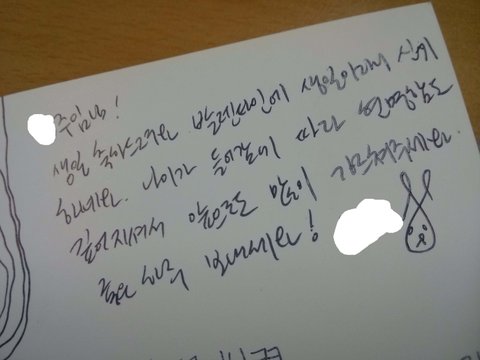 주임님!
생일 축하드려요. 발렌타인에 생일이라니 신기
하네요. 나이가 들어감에 따라 연애감도
깊어지셔서 앞으로도 많이 가르쳐주세요.
좋은 하루 보내세요!